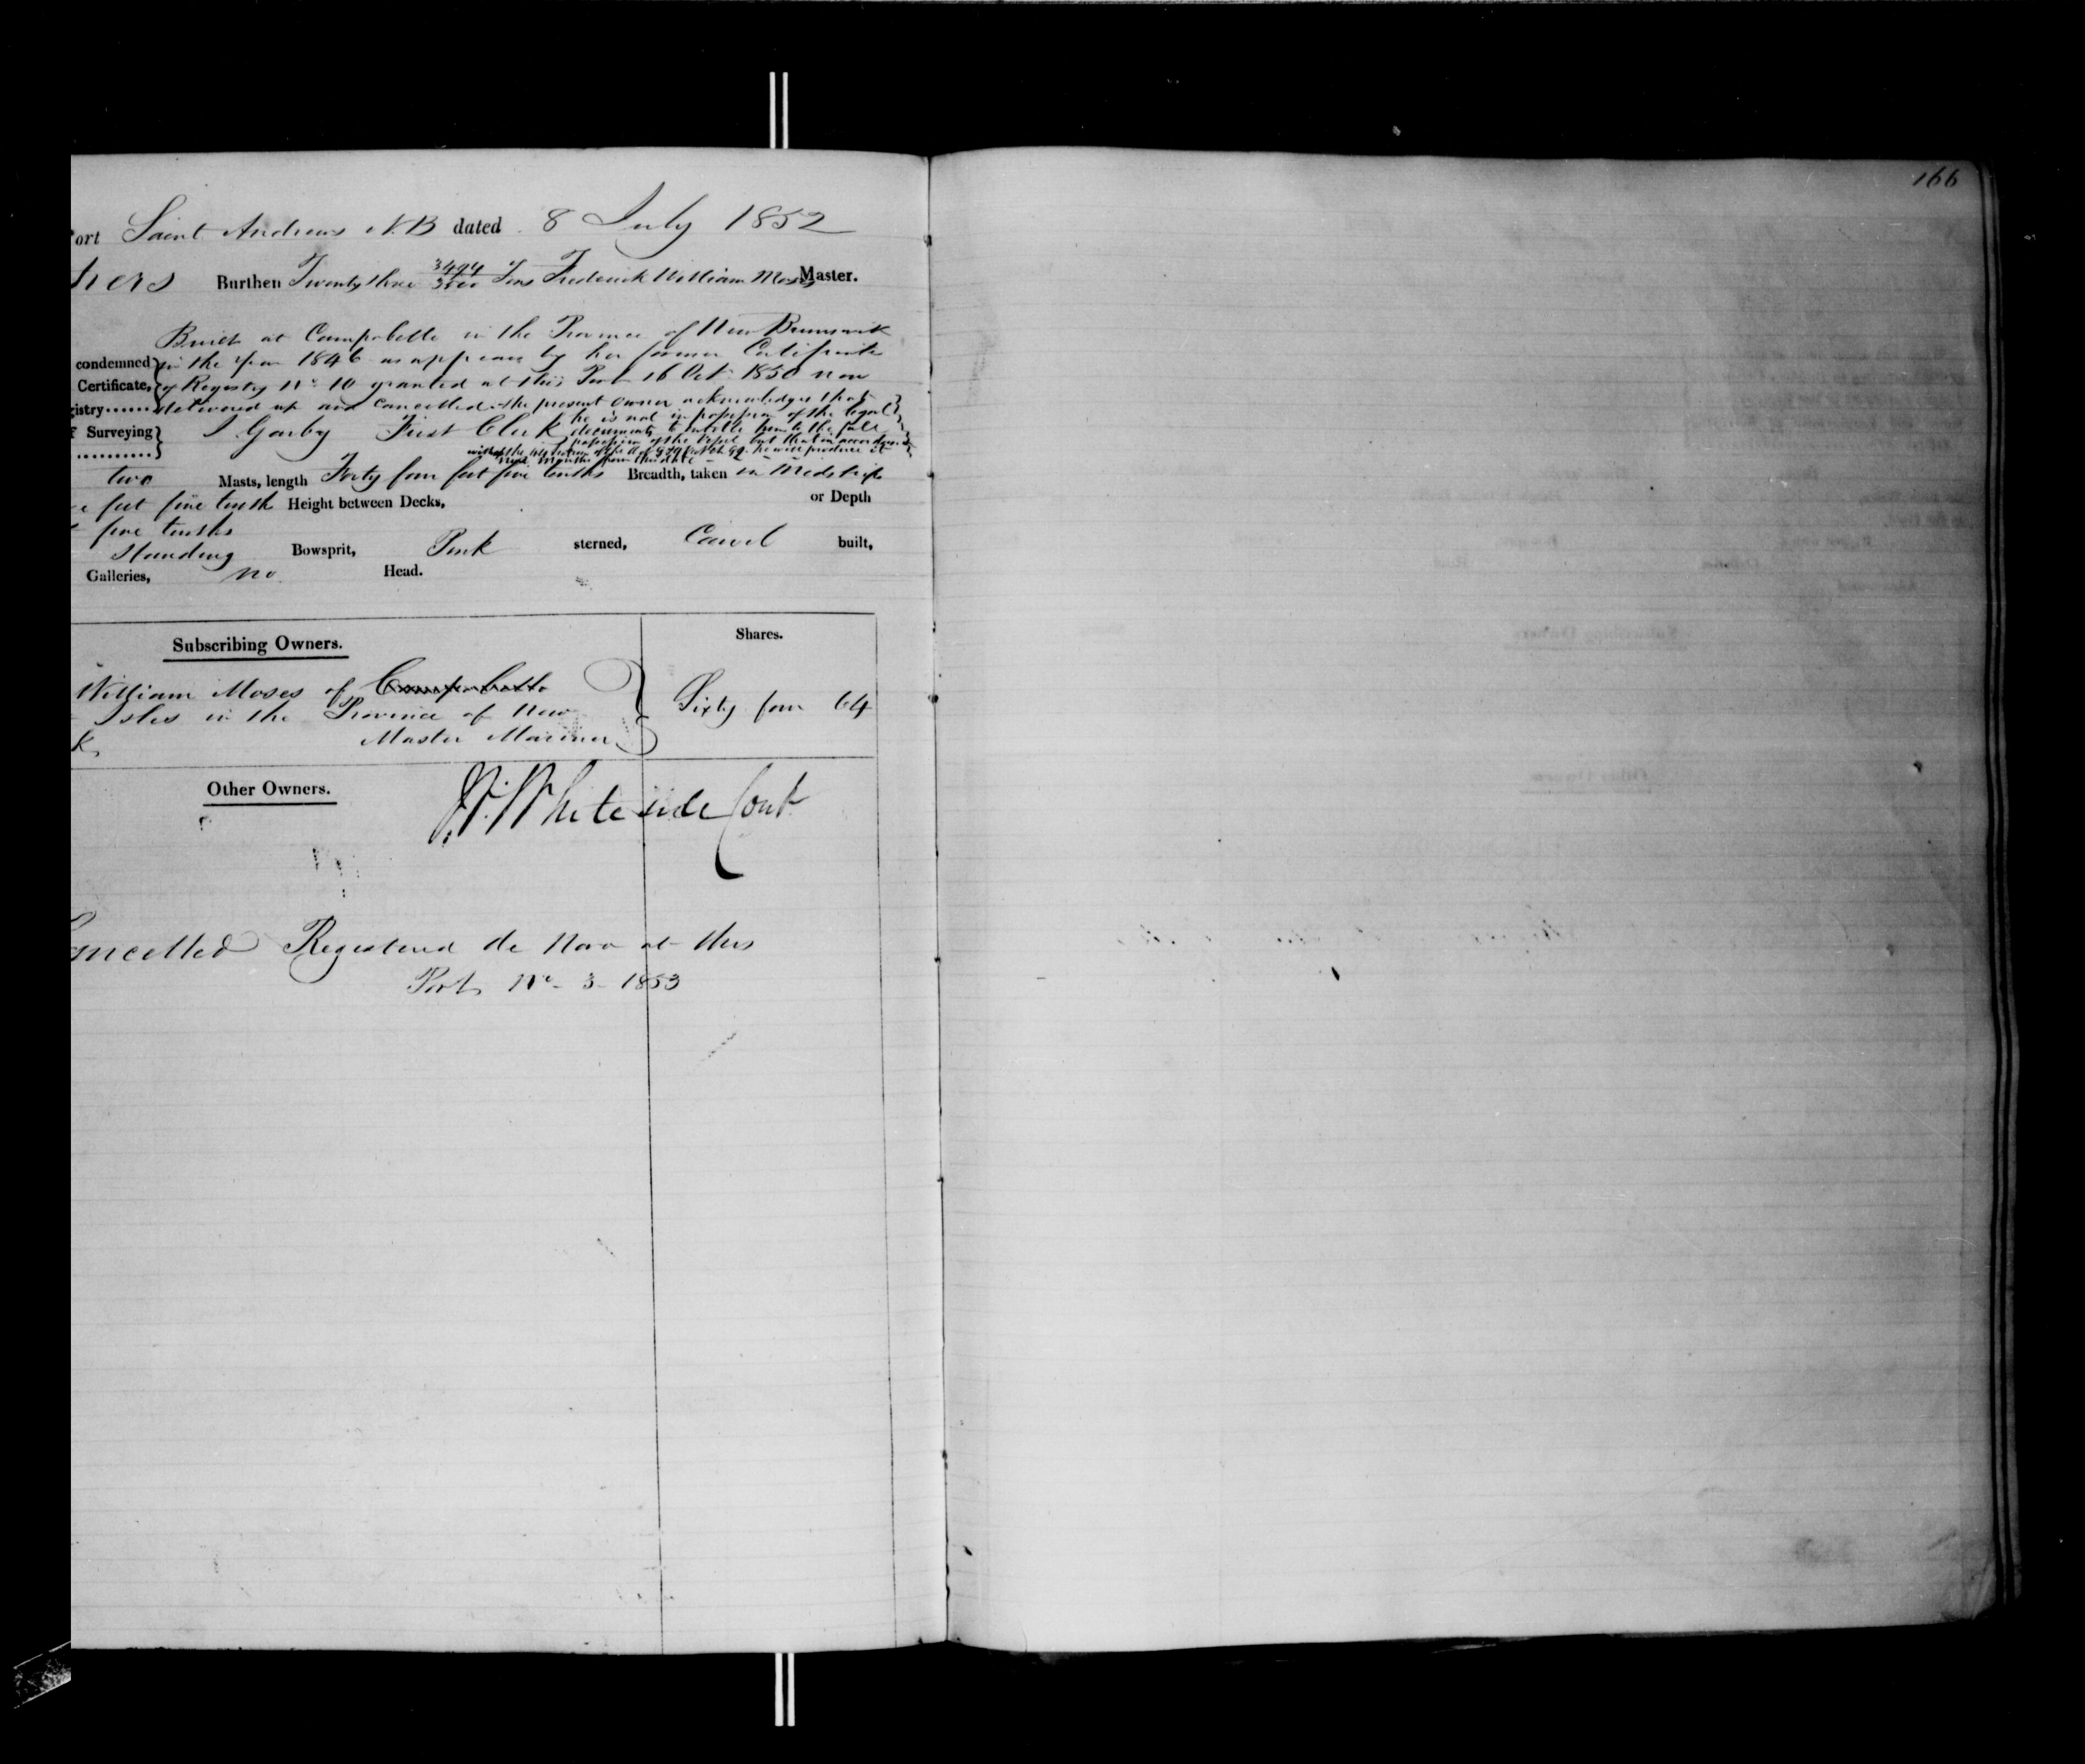 166
ort Saint Andrews N.B dated 8 July 1852
hers Burthen Twenty three 3494/3500 Tons Frederick William Moses Master.
Built at Campobello in the Province of New Brunswick
condemned in the Year 1846 as appears by her former Certificate
Certificate, of Registry No 10 granted at this Port 16 Oct 1850 now
gistry delivered up and Cancelled. the present Owner acknowledges that
he is not in possession of the legal
f Surveying Garby First Clerk documents to entitle him to the full
possession of the Vessel but that in accordance
he will produce it
months from this date
two Masts, length Forty four feet five tenths Breadth, taken in Midships
feet five tenths Height between Decks, or Depth
five tenths
Standing Bowsprit, Pink sterned, Carvel built,
Galleries, no Head.
Subscribing Owners. Shares.
William Moses of Campobello
Isles in the Province of New Sixty four 64
k Master Mariner
Other Owners.
Whiteside Cont
ancelled Registered de Novo at this
Port No 3 1853